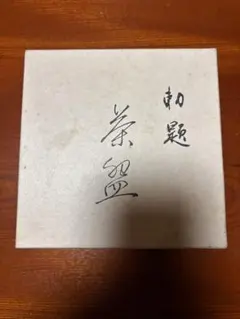 勅題
茶盌